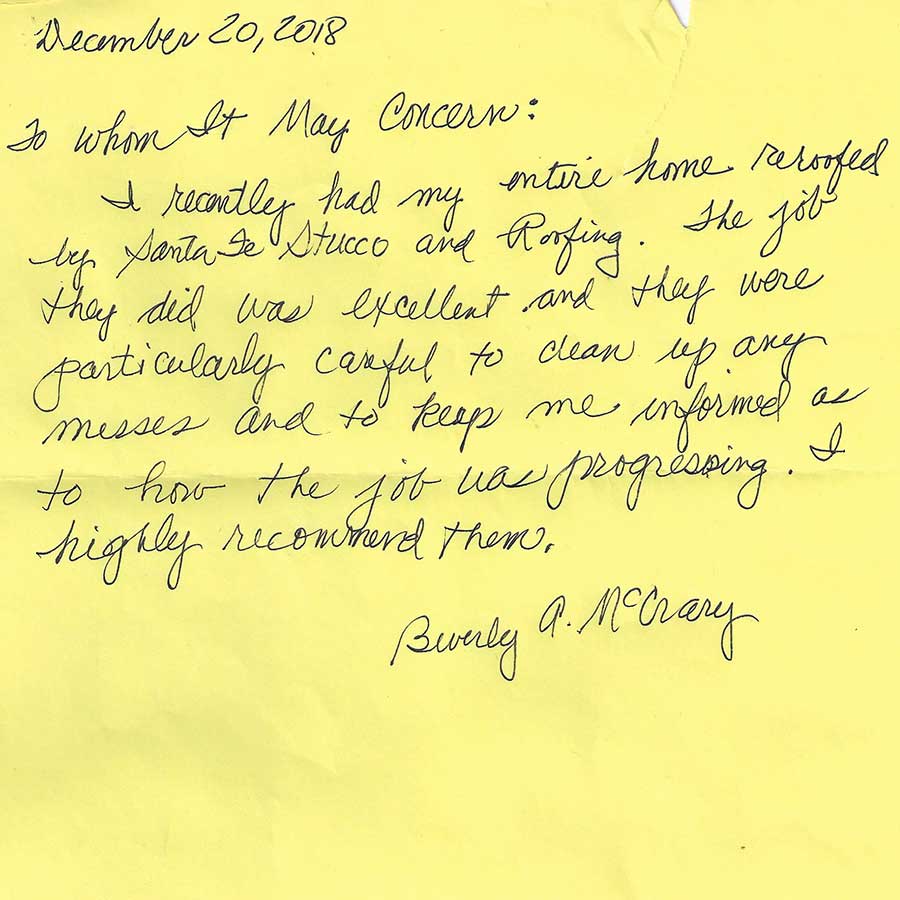 December 20, 2018
To Whom It May Concern:
I recently had my entire home reroofed
by Santa Fe Stucco and Roofing. The job
they did was excellent and they were
particularly careful to clean up any
messes and to keep me informed as
to how the job was progressing. I
highly recommend them.
Beverly A. McCrary